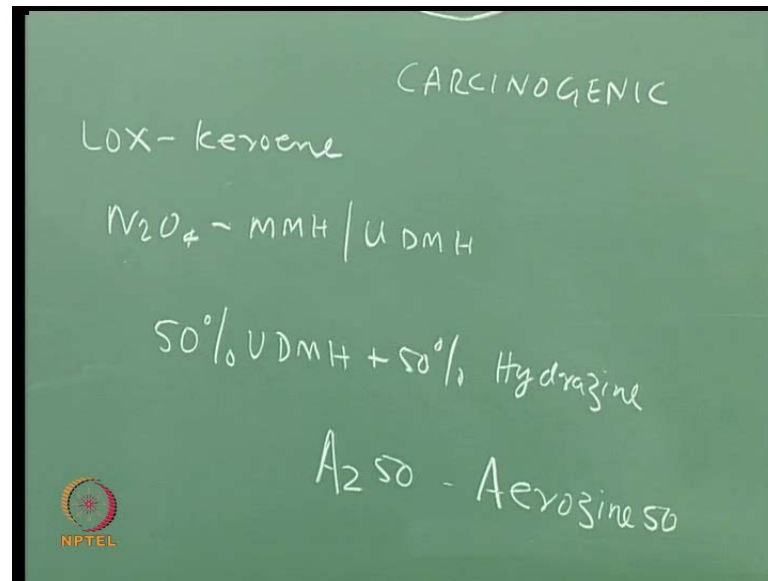 CARCINOGENIC
LOX - keroene
N2O4 - MMH / UDMH
50% UDMH + 50% Hydrazine
Az 50 - Aerozine 50
NPTEL